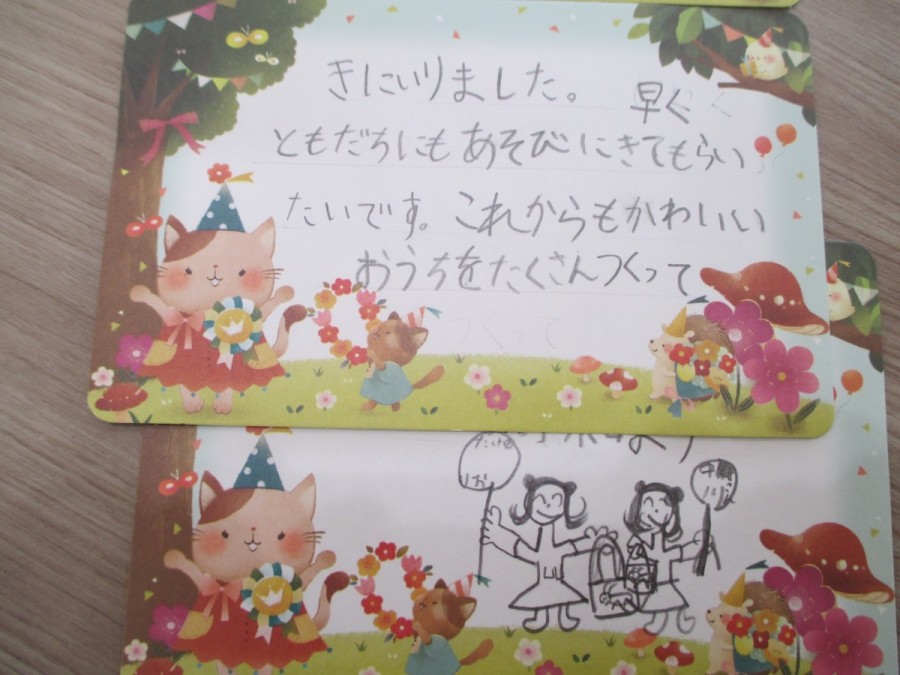 きにいりました。 早く
ともだちにもあそびにきてもらい
たいです。これからもかわいい
おうちをたくさんつくって